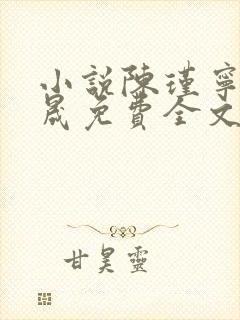 小說陳瑾寧
晟免費全文
甘昊靈